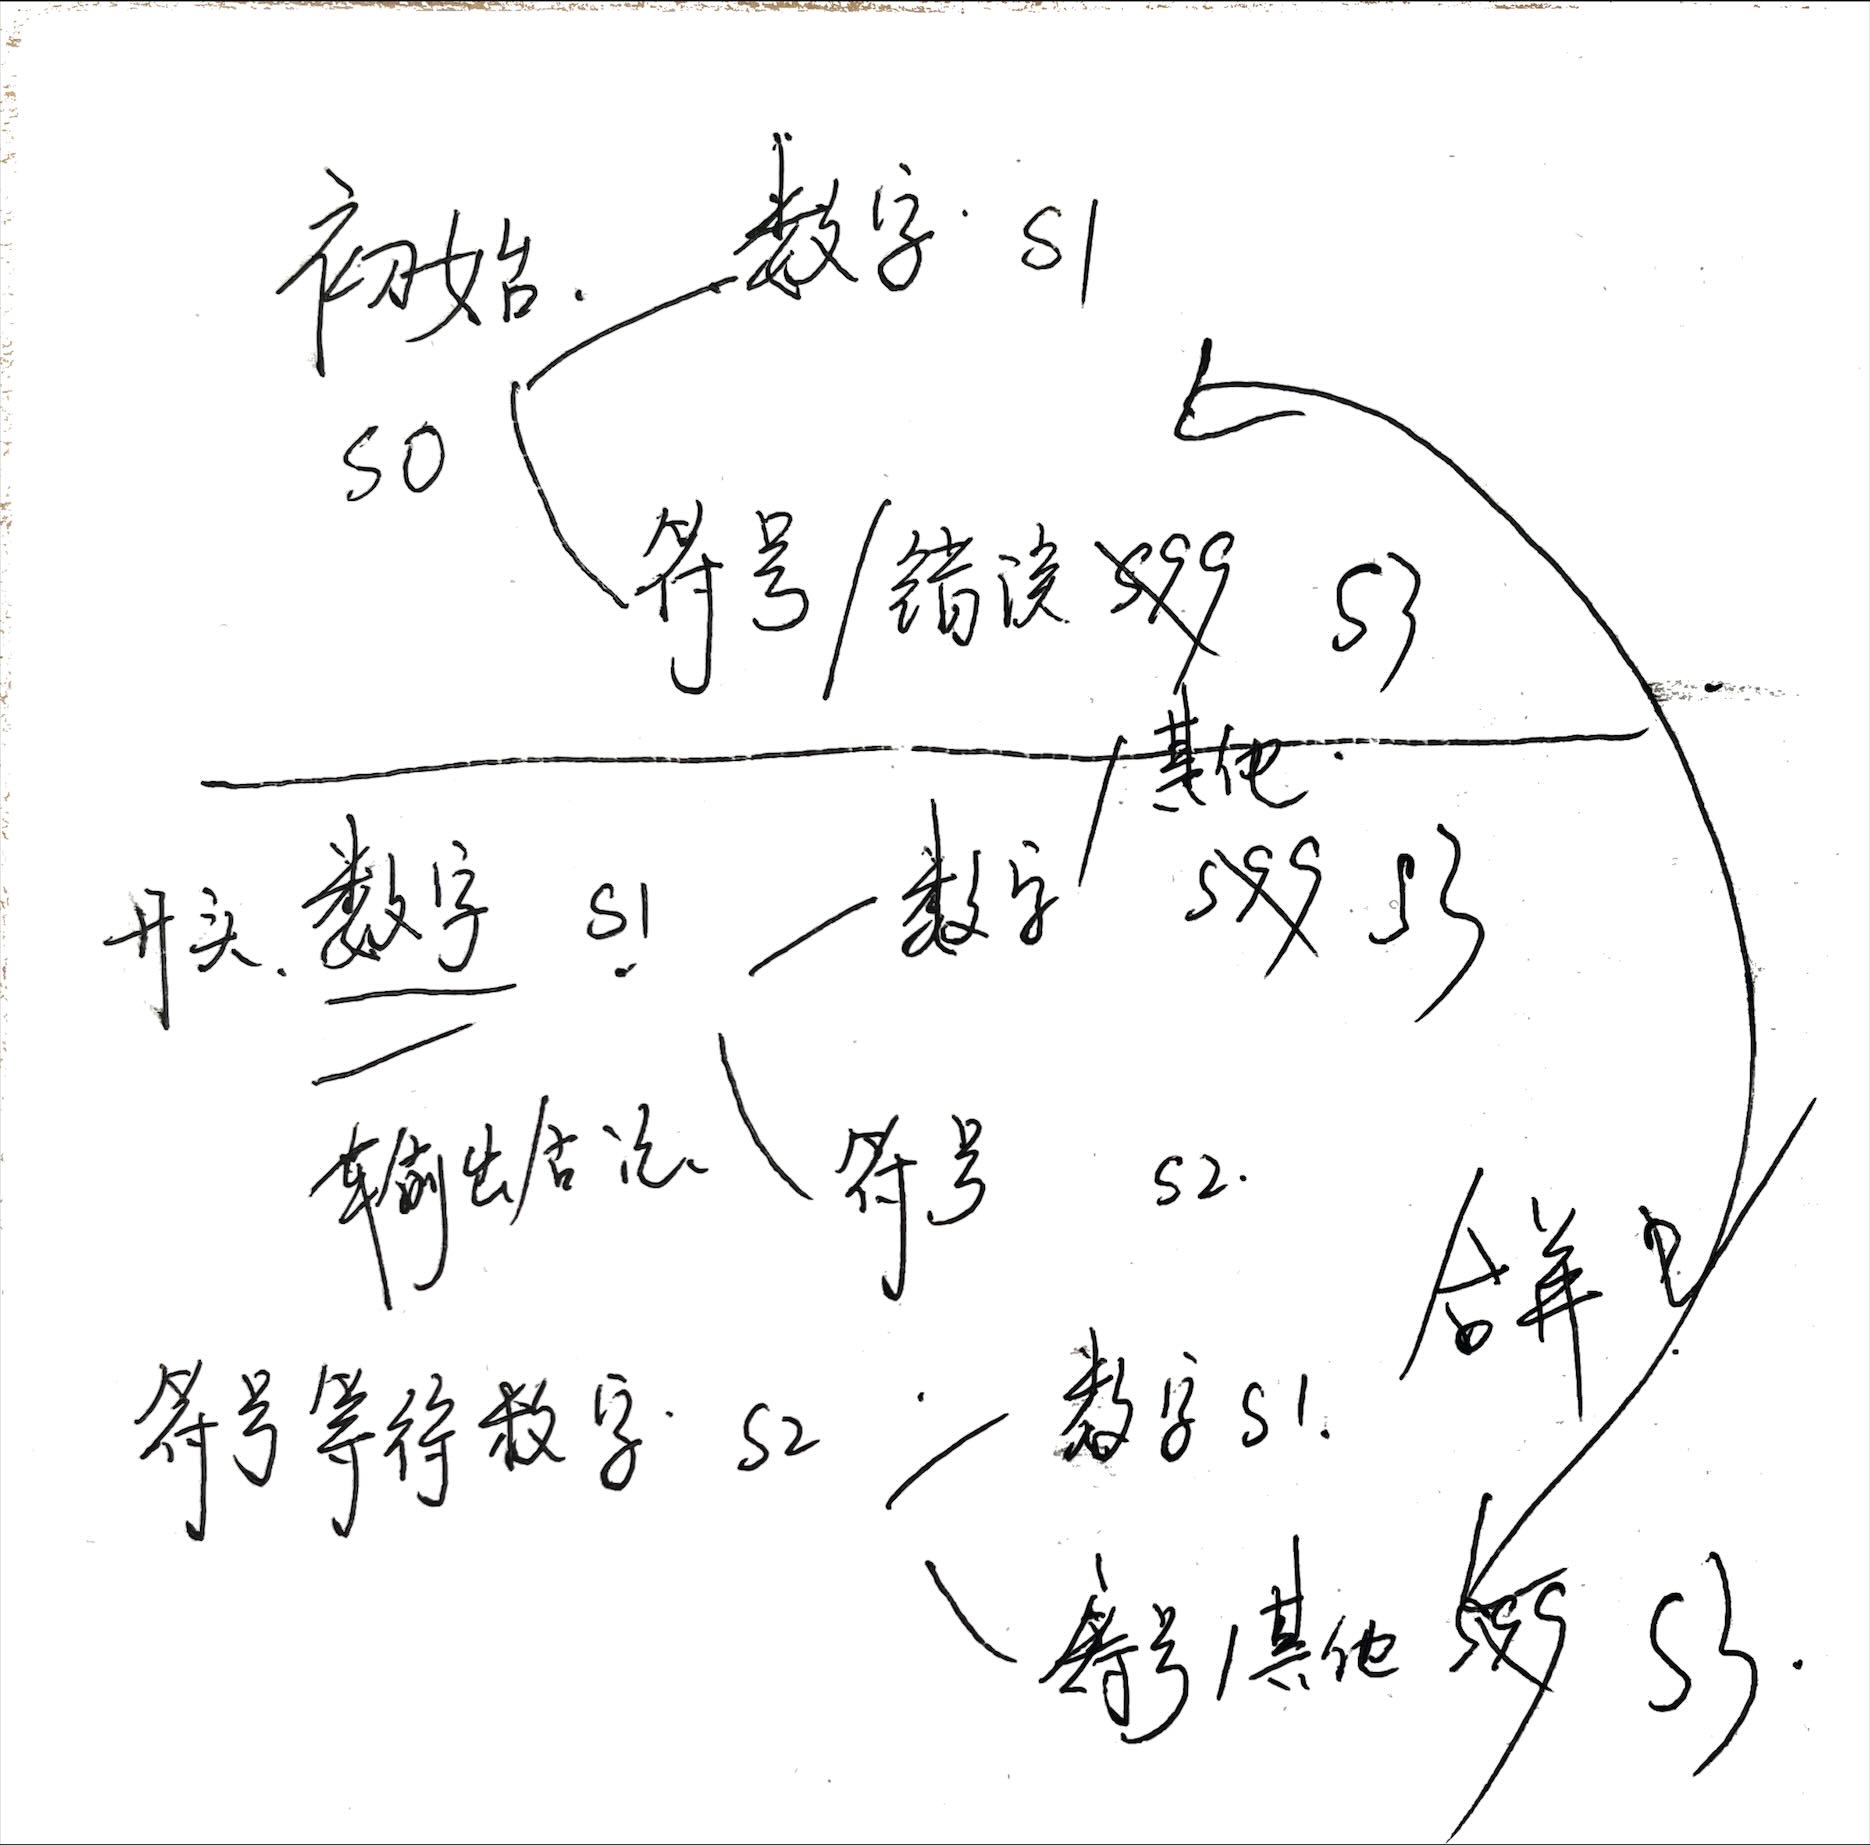 初始. 数字. S1
S0
符号/错误 S99 S3
/其他.
开头. 数字 S1 数字 S99 S3
输出/合法. 符号 S2.
合并
符号等待数字. S2 数字 S1.
符号/其他 S99 S3.